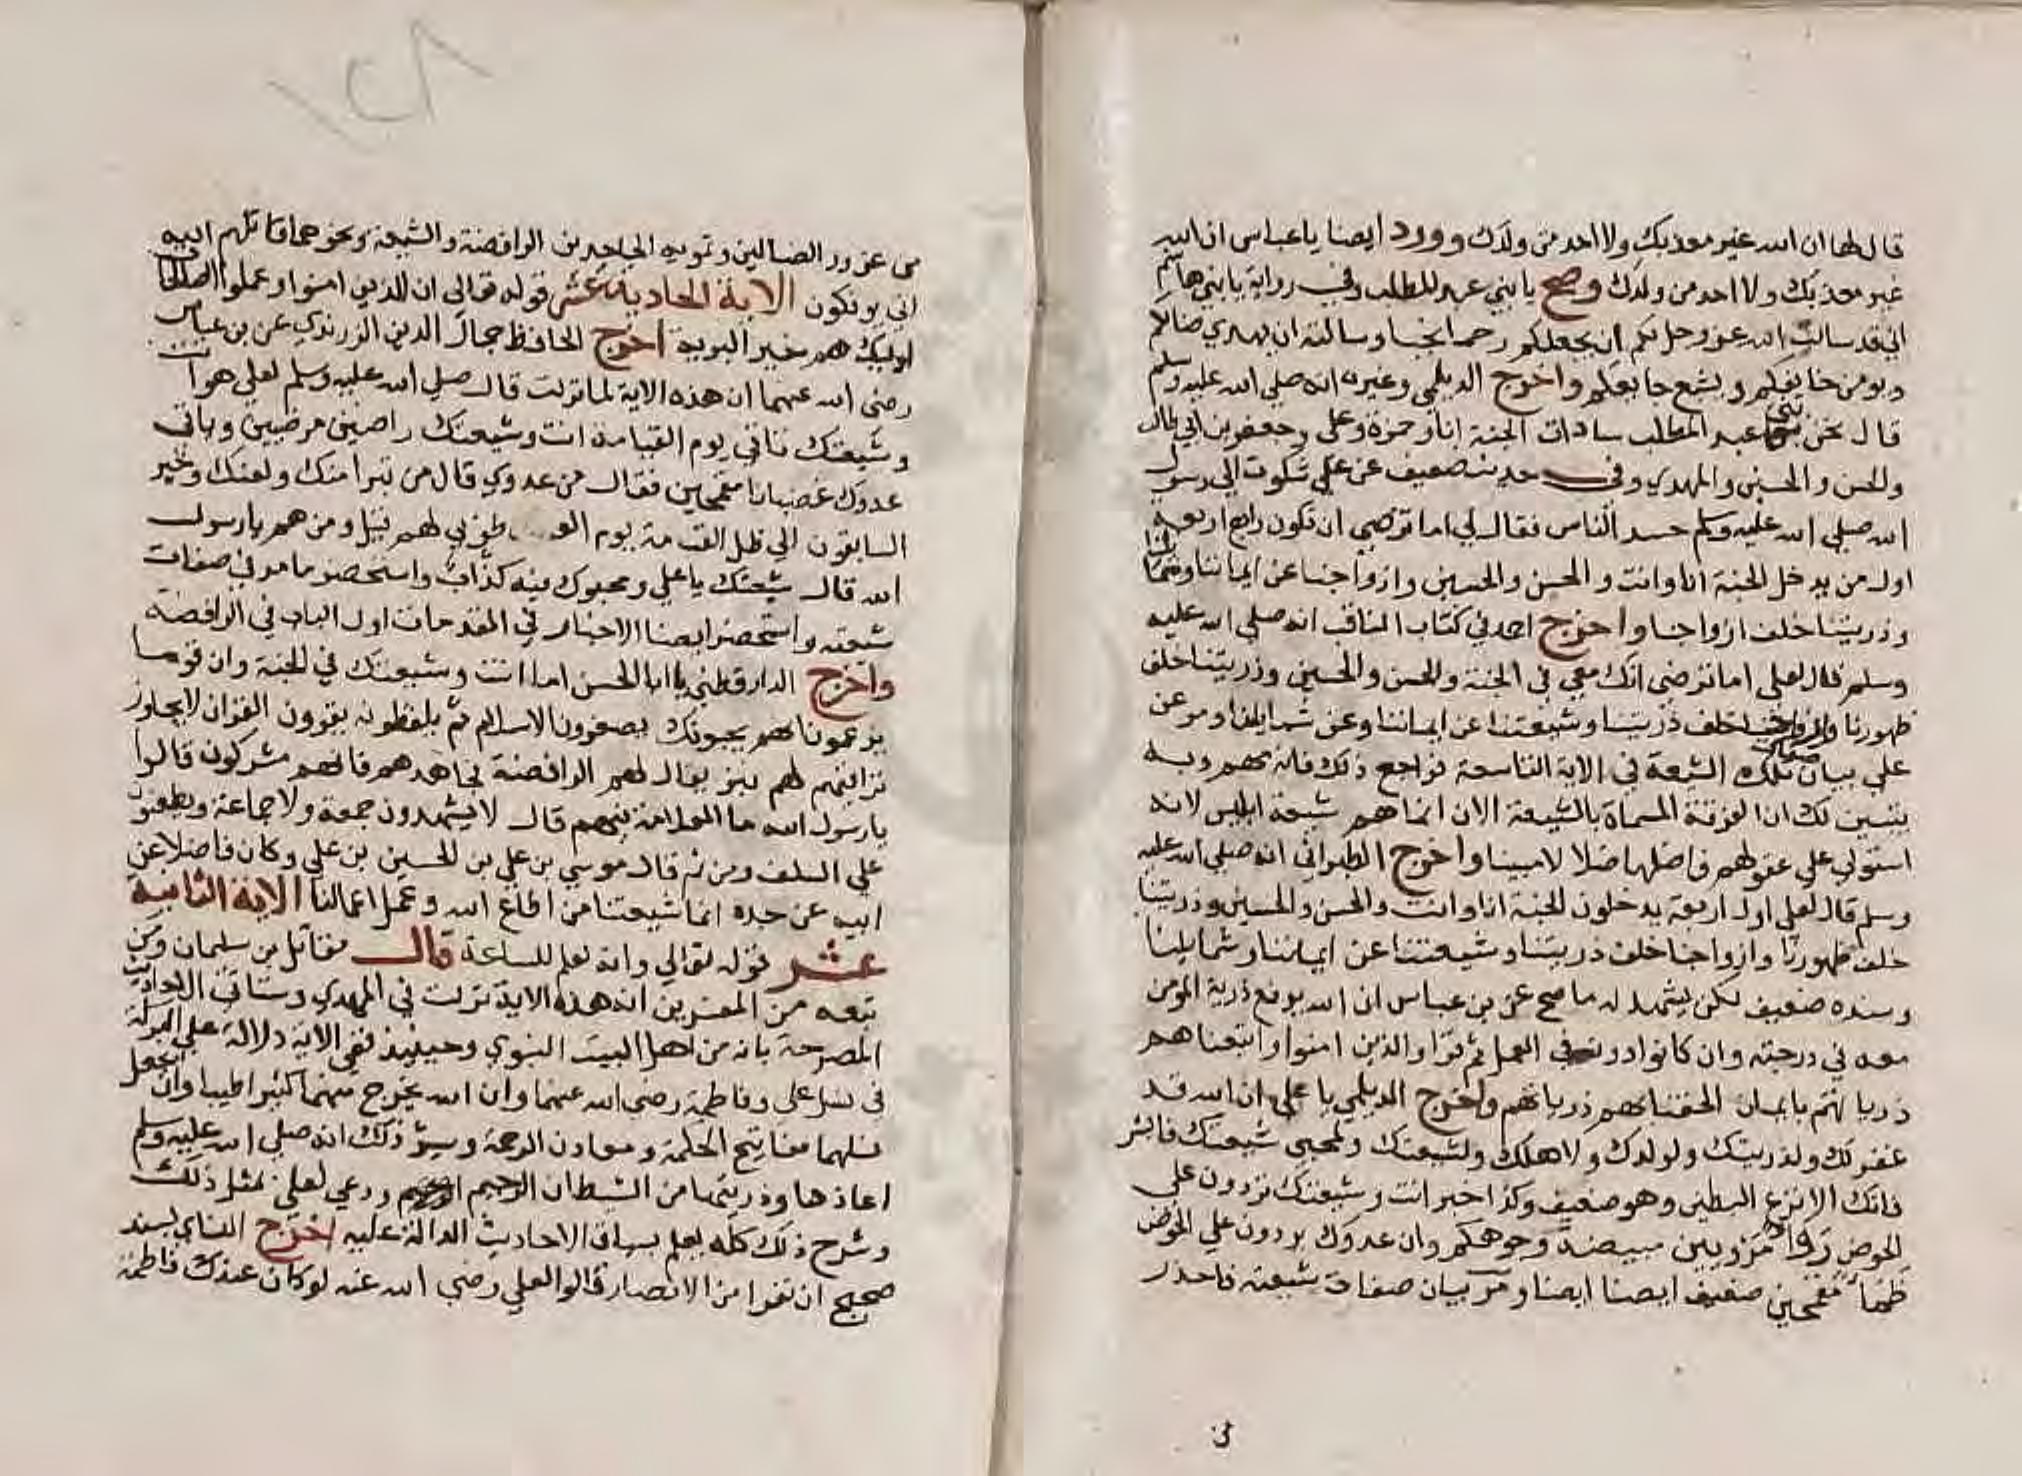 قال لها ان الله غير معذبك ولا احد من ولدك وورد ايضا يا عباس ان الله
غير معذبك ولا احد من ولدك وصح يا بني عبد المطلب وفي رواية يا بني هاشم
اني قد سالت الله عز وجل لكم ان يجعلكم رحما نجبا وسالته ان يهدي ضالكم
ويومن خايفكم ويشبع جايعكم واخرج الديلمي وغيره انه صلي الله عليه وسلم
قال نحن بني عبد المطلب سادات الجنة انا وحمزة وعلي وجعفر بن ابي طالب
والحسن والحسين والمهدي وفي حديث ضعيف عن علي شكوت الي رسول
الله صلي الله عليه وسلم حسد الناس فقال لي اما ترضي ان تكون رابع اربعة
اول من يدخل الجنة انا وانت والحسن والحسين وازواجنا عن ايماننا وشمايلنا
وذريتنا خلف ازواجنا واخرج احمد في كتاب المناقب انه صلي الله عليه
وسلم قال لعلي اما ترضي انك معي في الجنة والحسن والحسين وذريتنا خلف
ظهورنا وازواجنا خلف ذريتنا وشيعتنا عن ايماننا وعن شمايلنا ومر عن
علي بيان صفات تلك الشيعة في الاية التاسعة فراجع ذلك فانه مهم وبه
يتبين لك ان الفرقة المسماة بالشيعة الان انما هم شيعة ابليس لانه
استولي علي عقولهم فاضلها ضلالا مبينا واخرج الطبراني انه صلي الله عليه
وسلم قال لعلي اول اربعة يدخلون الجنة انا وانت والحسن والحسين وذريتنا
خلف ظهورنا وازواجنا خلف ذريتنا وشيعتنا عن ايماننا وشمايلنا
وسنده ضعيف لكن يشهد له ما صح عن بن عباس ان الله يرفع ذرية المومن
معه في درجته وان كانوا دونه في العمل ثم قرا والذين امنوا واتبعناهم
ذرياتهم بايمان الحقنا بهم ذرياتهم واخرج الديلمي يا علي ان الله قد
غفر لك ولذريتك ولولدك ولاهلك ولشيعتك ولمحبي شيعتك فابشر
فانك الانزع البطين وهو ضعيف وكذا خبر انت وشيعتك تردون علي
الحوض رواة مرويين مبيضة وجوهكم وان عدوك يردون علي الحوض
ظمأ مقمحين ضعيف ايضا ايضا ومر بيان صفات شيعته فاحذر
من
١٢٨
من غرور الضالين وتمويه الجاحدين الرافضة والشيعة ونحوهما قاتلهم الله
اني يوفكون الاية الحادية عشر قوله تعالي ان الذين امنوا وعملوا الصالحات
اوليك هم خير البرية اخرج الحافظ جمال الدين الزرندي عن بن عباس
رضي الله عنهما ان هذه الاية لما نزلت قال صلي الله عليه وسلم لعلي هو انت
وشيعتك تاتي يوم القيامة انت وشيعتك راضين مرضيين وياتي
عدوك غضبانا مقمحين فقال من عدوي قال من تبرا منك ولعنك وخبر
السابقون الي ظل يوم طوبي لهم قيل ومن هم يا رسول
الله قال شيعتك يا علي ومحبوك فيه كذاب واستحضر ما مر في صفات
شيعته واستحضر ايضا الاخبار في المقدمات اول الباب في الرافضة
واخرج الدارقطني يا ابا الحسن اما انت وشيعتك في الجنة وان قوما
يزعمون انهم يحبونك يصغرون الاسلام ثم يلفظونه يقرون القران لا يجاوز
تراقيهم لهم نبز يقال لهم الرافضة فجاهدهم فانهم مشركون قالوا
يا رسول الله ما العلامة فيهم قال لا يشهدون جمعة ولا جماعة ويطعنون
علي السلف ومن ثم قال موسي بن علي بن الحسين بن علي وكان فاضلا عن
ابيه عن جده انما شيعتنا من اطاع الله وعمل اعمالنا الاية الثانية
عشر قوله تعالي وانه لعلم للساعة قال مقاتل بن سليمان ومن
تبعه من المفسرين ان هذه الاية نزلت في المهدي وستاتي الاحاديث
المصرحة بانه من اهل البيت النبوي وحينيذ ففي الاية دلالة علي البركة
في نسل علي وفاطمة رضي الله عنهما وان الله يخرج منهما كثيرا طيبا وان يجعل
نسلهما مفاتيح الحكمة ومعادن الرحمة وسر ذلك انه صلي الله عليه وسلم
اعاذها وذريتها من الشيطان الرجيم ودعي لعلي بمثل ذلك
وشرح ذلك كله يعلم بسياق الاحاديث الدالة عليه اخرج النساي بسند
صحيح ان نفرا من الانصار قالوا لعلي رضي الله عنه لو كان عندك فاطمة